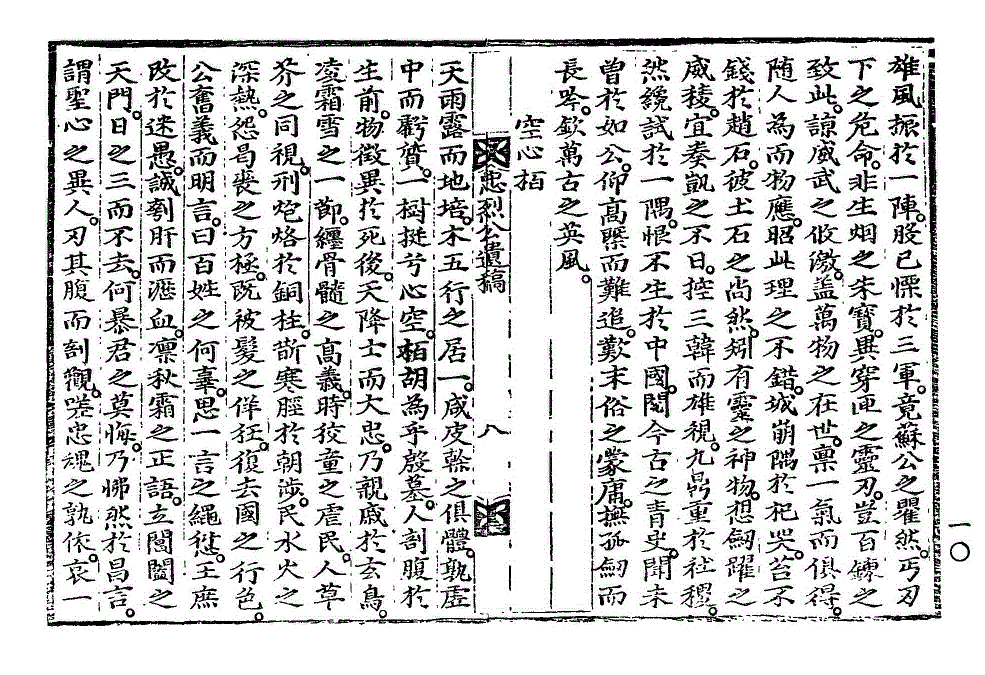 雄風振於一陣。股已慄於三軍。竟蘇公之瞿然。丐刃
下之危命。非生烟之朱寶。異穿匣之靈刃。豈百鍊之
致此。諒威武之攸激。盖萬物之在世。禀一氣而俱得。
随人為而物應。昭此理之不錯。城崩隅於杞哭。苔不
錢於趙石。彼土石之尚然。矧有靈之神物。想劒躍之
威稜。宜奏凱之不日。控三韓而雄視。九鼎重於社稷。
然纔試於一隅。恨不生於中國。閱今古之青史。聞未
曾於如公。仰高槩而難追。歎末俗之蒙庸。撫孤劒而
長吟。欽萬古之英風。
空心栢
忠烈公遺稿
八
天雨露而地培。木五行之居一。咸皮榦之俱體。孰虛
中而虧質。一樹挺兮心空。栢胡為乎殷墓。人剖腹於
生前。物徵異於死後。天降士而大忠。乃親戚於玄鳥。
凌霜雪之一節。纏骨髓之高義。時狡童之虐民。人草
芥之同視。刑炮烙於銅柱。斮寒脛於朝涉。民水火之
深熱。怨曷喪之方極。旣被髮之佯狂。復去國之行色。
公奮義而明言。曰百姓之何辜。思一言之繩愆。王庶
改於迷愚。誠刳肝而瀝血。凛秋霜之正語。立閶闔之
天門。日之三而不去。何暴君之莫悔。乃怫然於昌言。
謂聖心之異人。刃其腹而剖觀。嗟忠魂之孰依。哀一
一〇